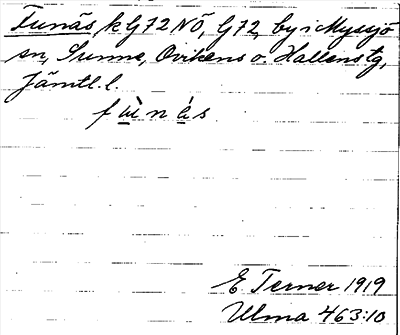 Tunäs, k G72 NÖ, G72, by i Myssjö
sn, Sunne, Ovikens o. Hallens tg,
Jämtl. l.
E. Terner 1919
Ulma 463:10